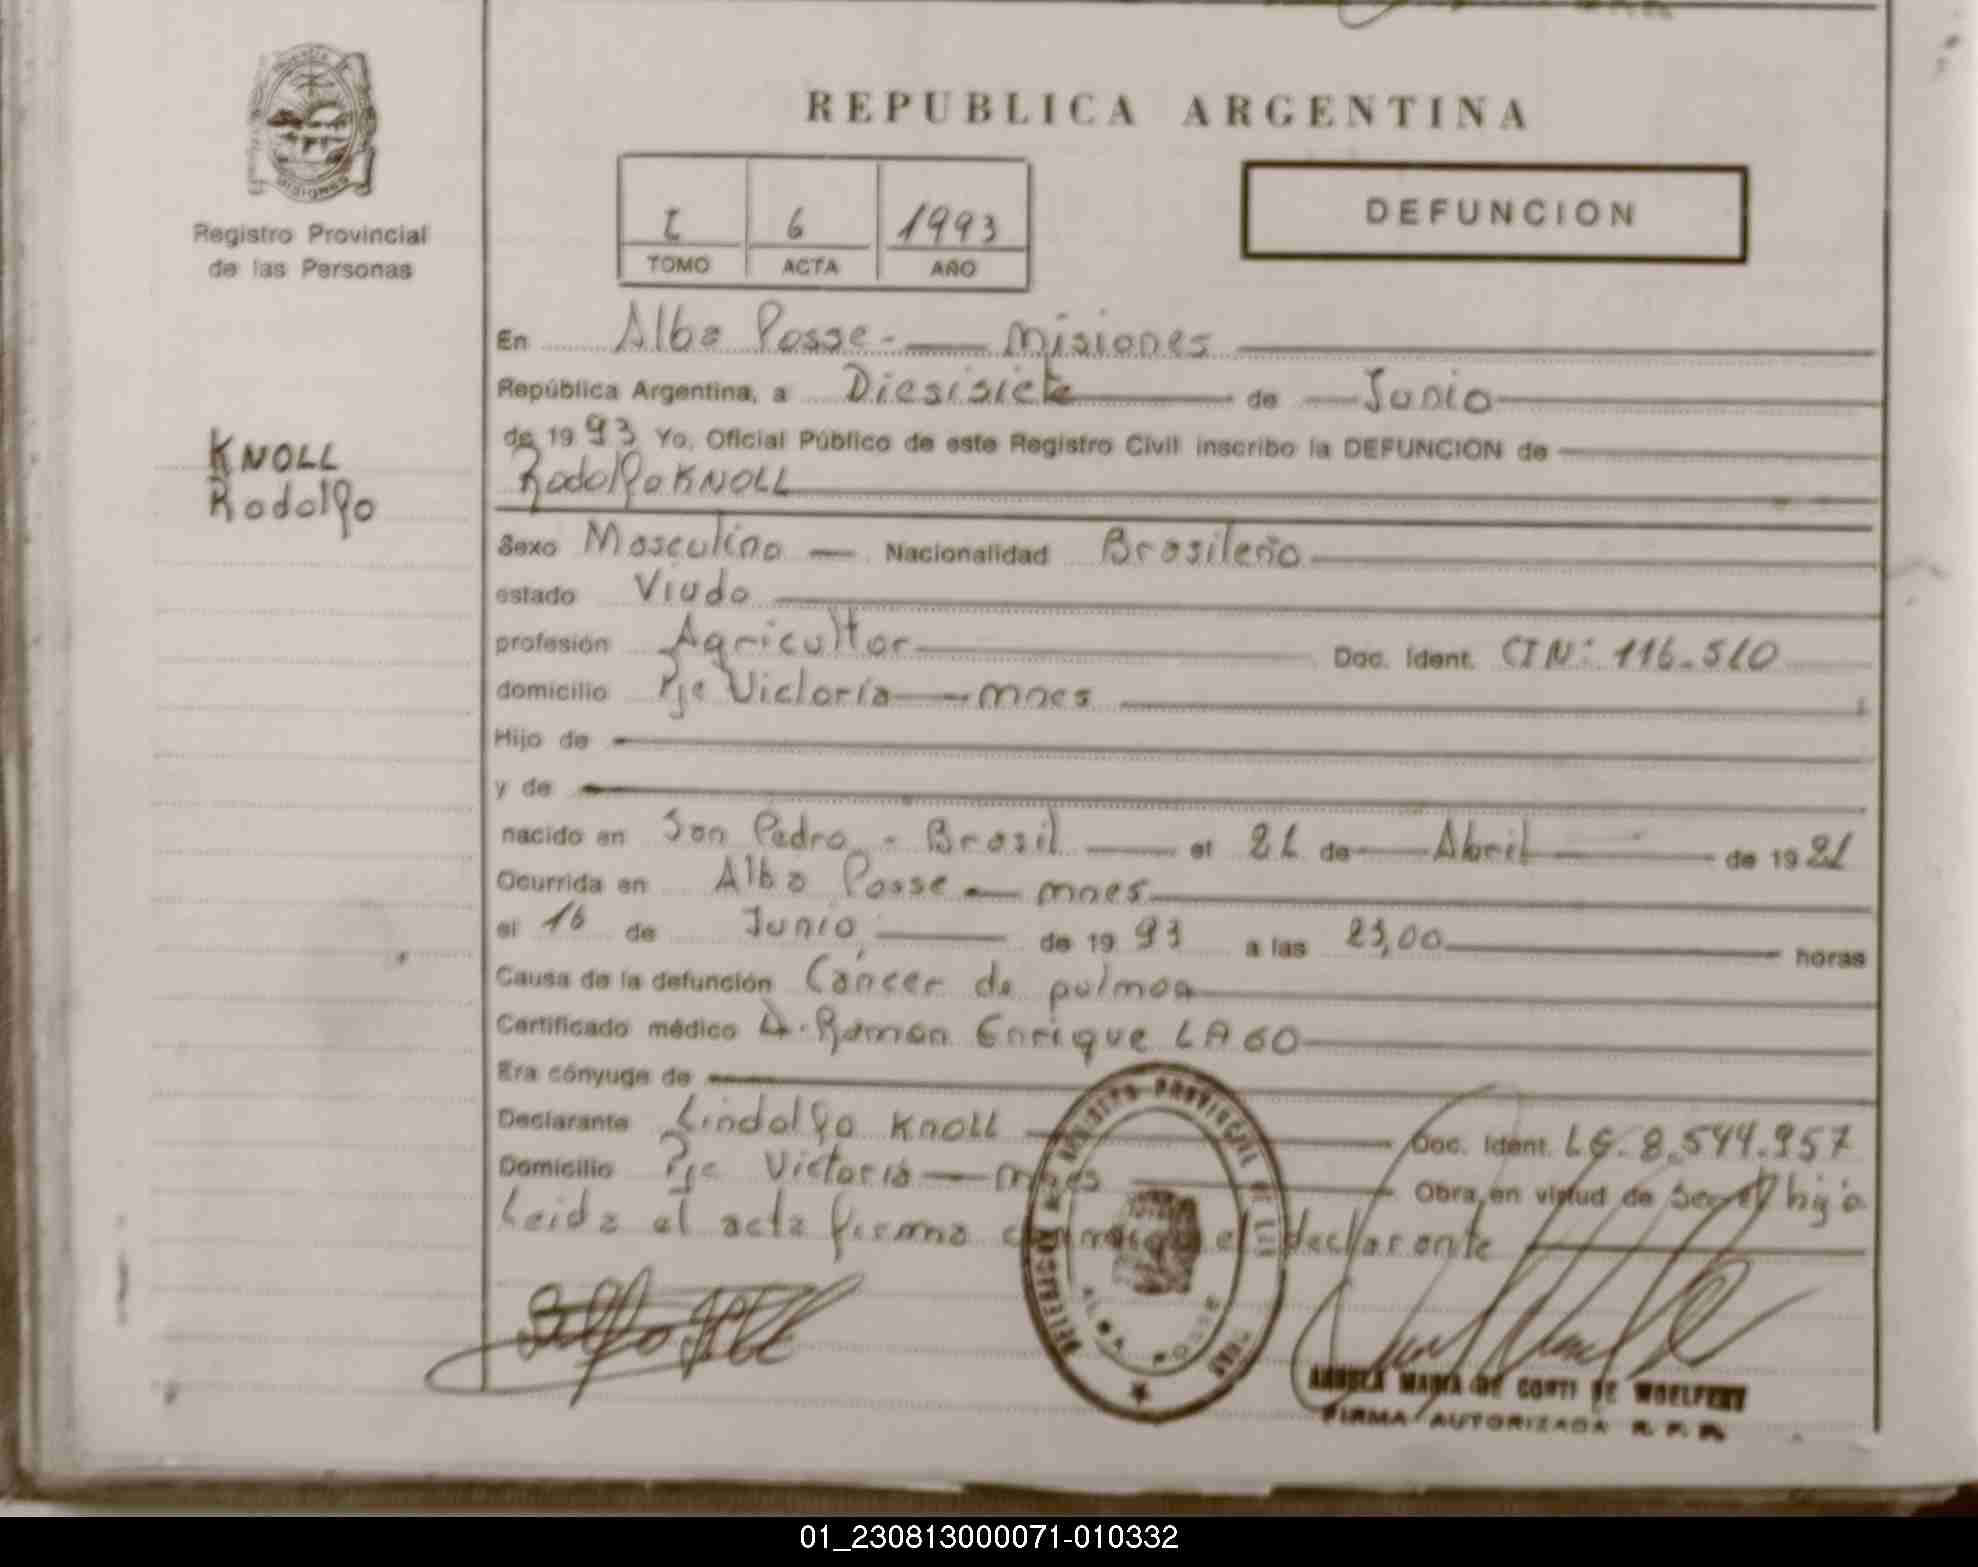 REPUBLICA ARGENTINA
Registro Provincial
de las Personas
I 6 1993
TOMO ACTA AÑO
DEFUNCION
KNOLL
Rodolfo
En Alba Posse - Misiones
República Argentina, a Diesisiete de Junio
de 1993 Yo, Oficial Público de este Registro Civil inscribo la DEFUNCION de
Rodolfo KNOLL
Sexo Masculino Nacionalidad Brasileño
estado Viudo
profesión Agricultor Doc. Ident. CIN: 116.510
domicilio Pje Victoria mnes
Hijo de
y de
nacido en San Pedro - Brasil el 21 de Abril de 1921
Ocurrida en Alba Posse mnes
el 16 de Junio de 1993 a las 23,00 horas
Causa de la defunción Cáncer de pulmon
Certificado médico Ramón Enrique LAGO
Era cónyuge de
Declarante Lindolfo Knoll Doc. Ident. LE. 8.544.957
Domicilio Pje Victoria mnes Obra en virtud de ser el hijo
Leida el acta firma conmigo el declarante
ALBA POSSE
MARIA DE CONTI DE WOELFERT
FIRMA AUTORIZADA R. P. P.
01_230813000071-010332